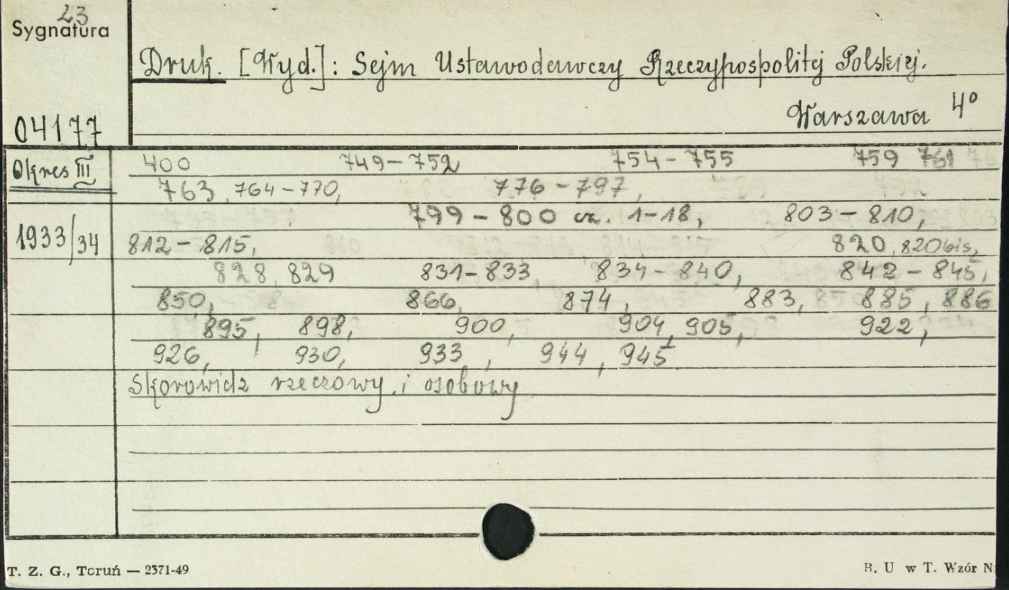 23
Sygnatura
Druk. [Wyd.]: Sejm Ustawodawczy Rzeczypospolitej Polskiej.
Warszawa 4°
04177
Okres III 400 749-752 754-755 759 761
763, 764-770, 776-797,
799-800 cz. 1-18, 803-810,
1933/34 812-815, 820, 820bis,
828, 829 831-833, 834-840, 842-845,
850, 866, 874, 883, 885, 886
895, 898, 900, 904, 905, 922,
926, 930, 933, 944, 945
Skorowidz rzeczowy i osobowy
T. Z. G., Toruń — 2571-49 B. U w T. Wzór N